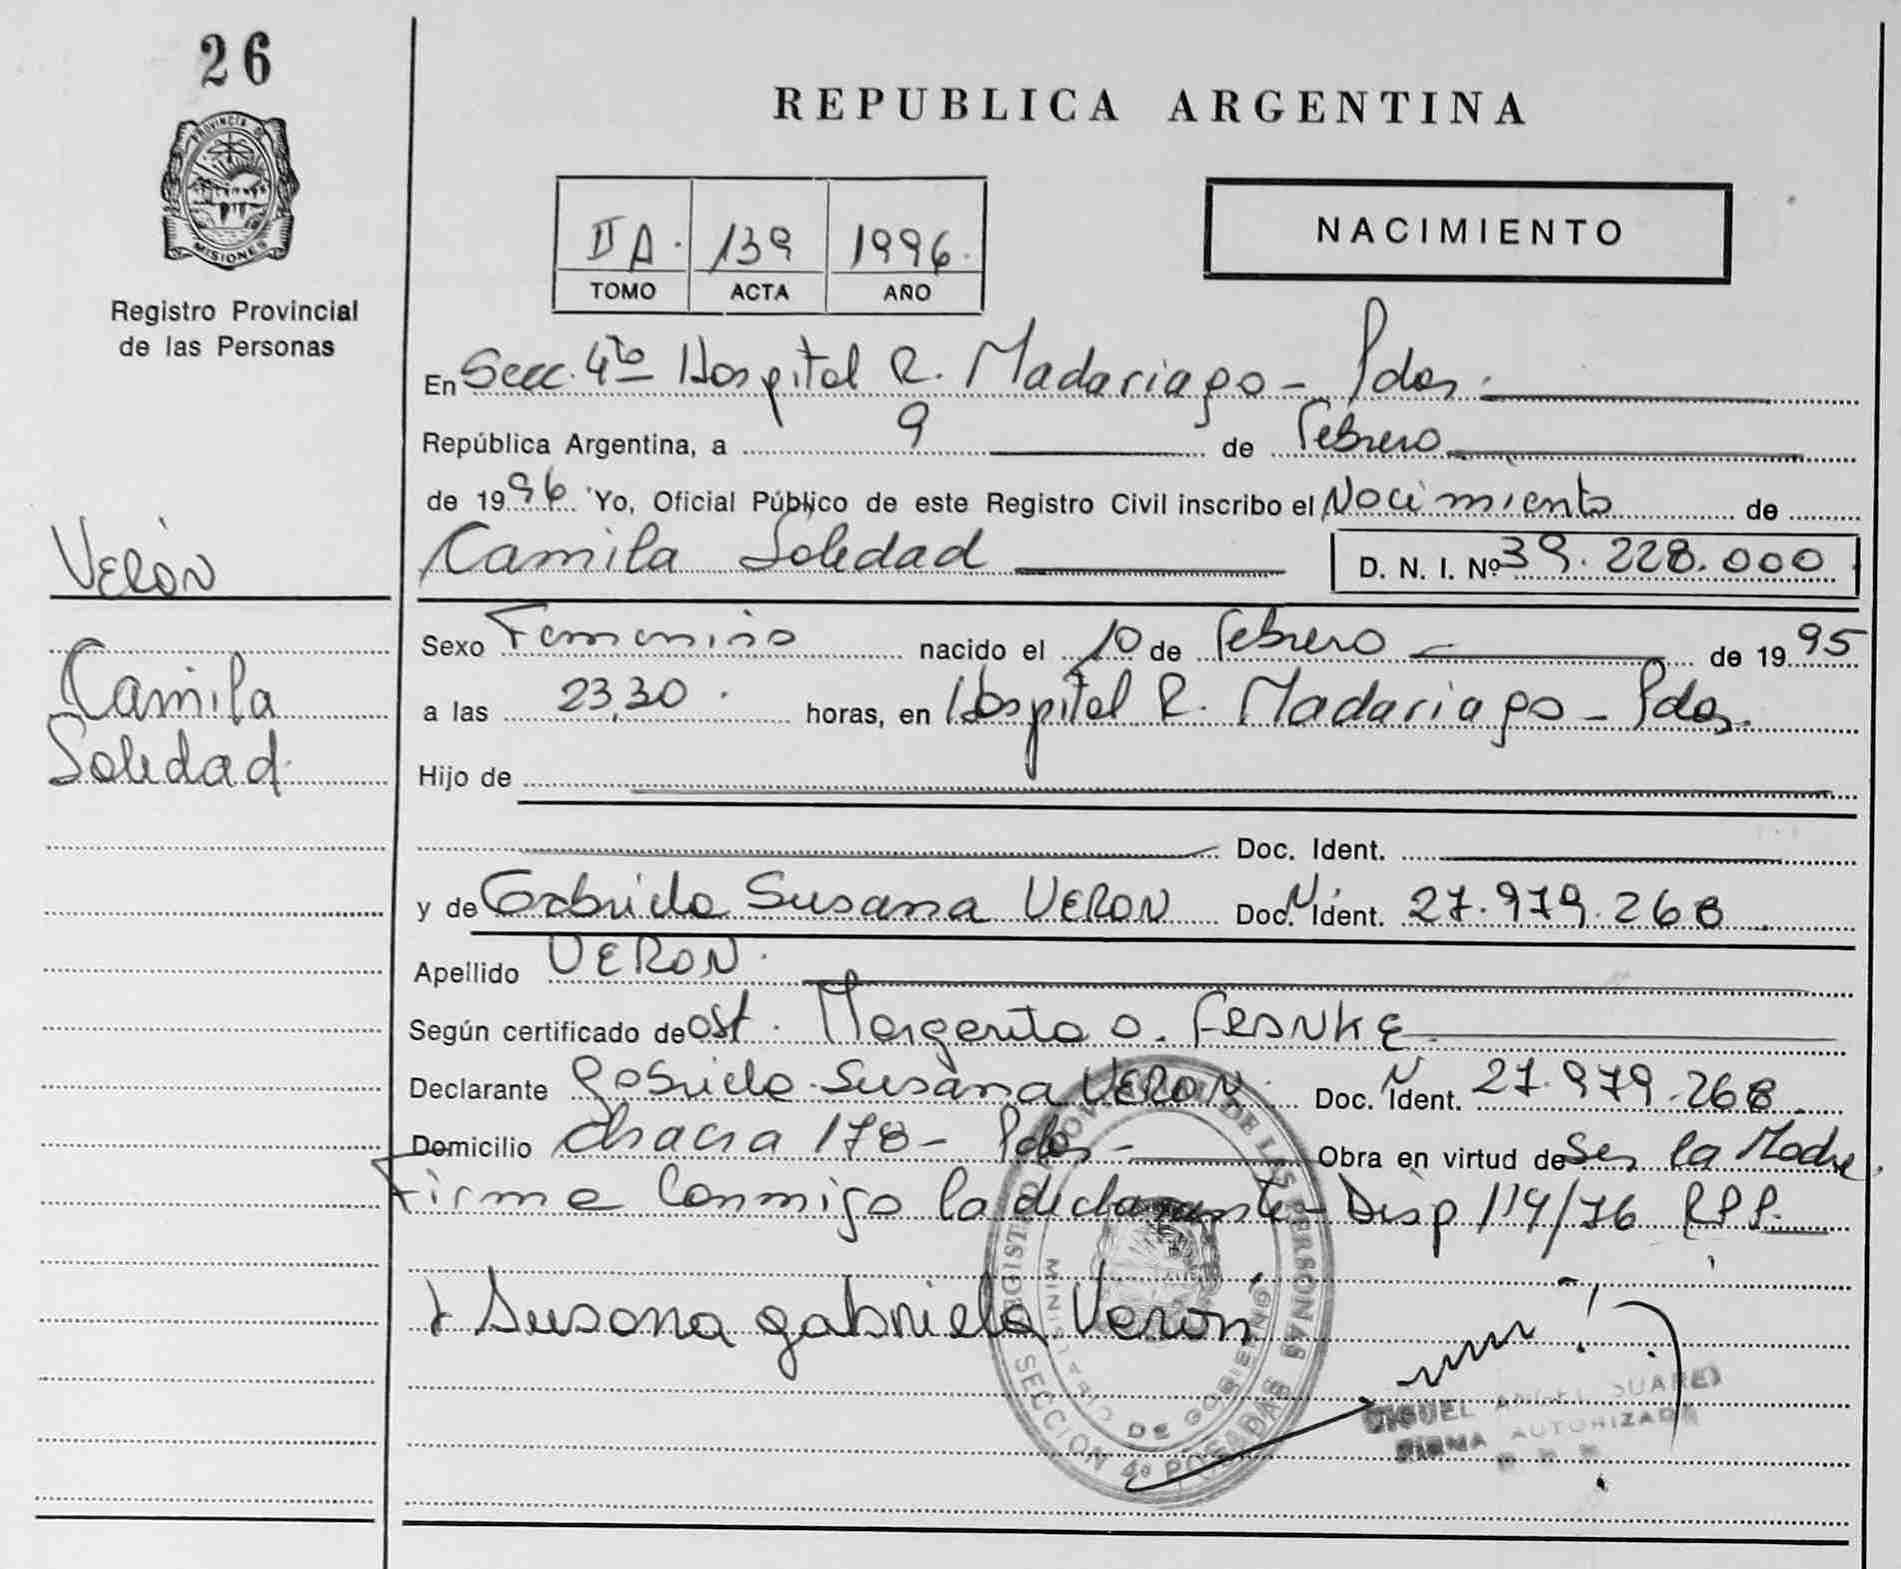 26
PROVINCIA D
MISIONES
Registro Provincial
de las Personas
REPUBLICA ARGENTINA
II A. 139 1996.
TOMO ACTA AÑO
NACIMIENTO
En Secc. 4ta Hospital R. Madariaga - Pdas.
República Argentina, a 9 de Febrero
de 1996 Yo, Oficial Público de este Registro Civil inscribo el Nacimiento de
Verón
Camila Soledad D. N. I. Nº 39.228.000
Camila
Soledad
Sexo Femenino nacido el 10 de Febrero de 1995
a las 23,30. horas, en Hospital R. Madariaga - Pdas.
Hijo de
Doc. Ident.
y de Gabriela Susana VERON Doc. Ident. N 27.979.268
Apellido VERON.
Según certificado de Ost. Margarita O. FRANKE
Declarante Gabriela Susana VERON Doc. Ident. N 27.979.268
Domicilio Chacra 178 - Pdas - Obra en virtud de Ser la Madre.
Firma Conmigo la declarante - Disp 114/76 RPP.
Susana gabriela Verón
REGISTRO PROVINCIAL DE LAS PERSONAS
MINISTERIO DE GOBIERNO
SECCION 4º POSADAS
MIGUEL ANGEL SUAREZ
FIRMA AUTORIZADA